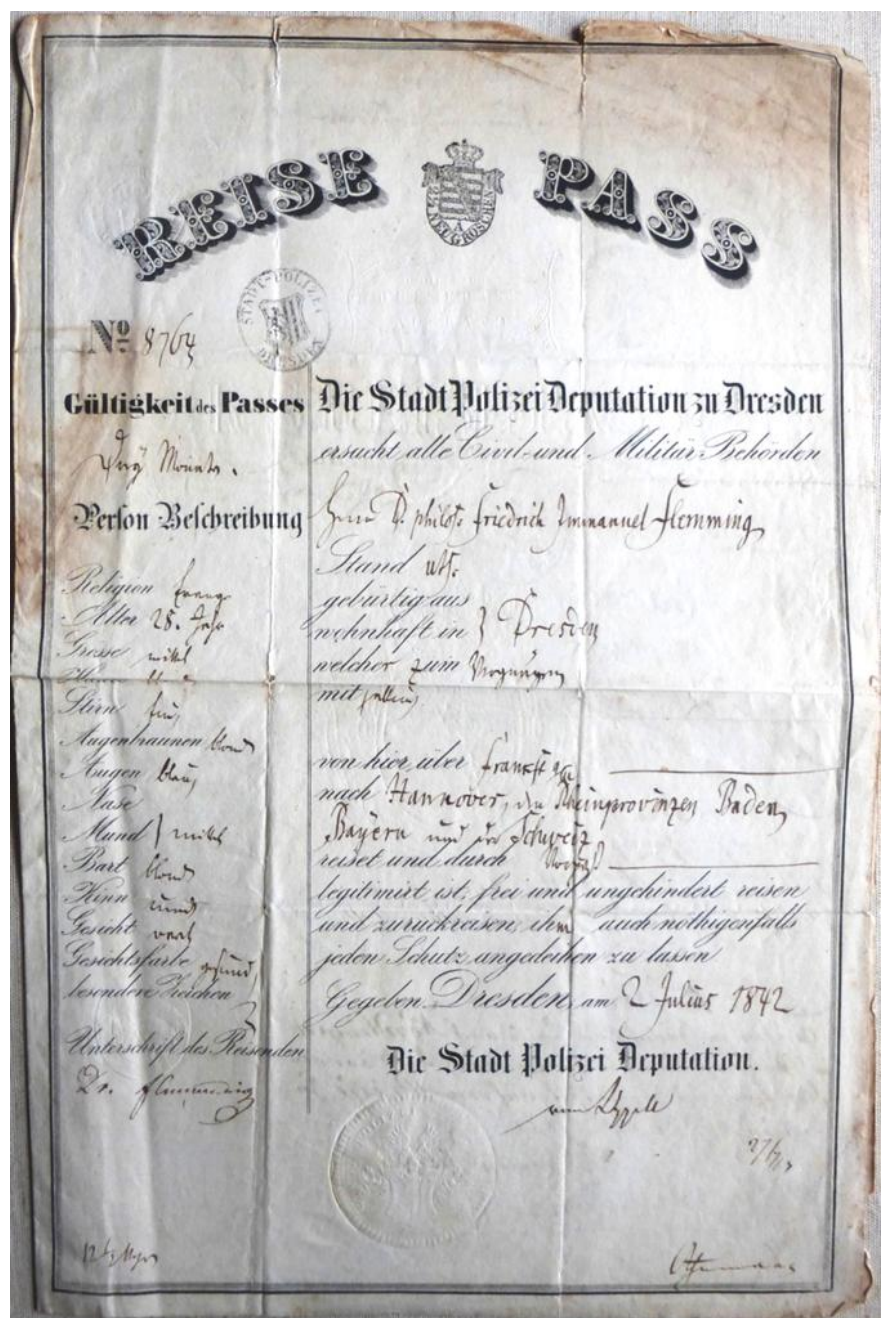 REISE PASS
2½ NEUGROSCHEN
STADT-POLIZEI DRESDEN
No 8764
Gültigkeit des Passes
Monate.
Person Beschreibung
Religion Evang.
Alter 25. Jahr
Grosse mittel
Stirn frei
Augenbraunen blond
Augen blau
Nase
Mund } mittel
Bart blond
Kinn rund
Gesicht oval
Gesichtsfarbe gesund
besondere Zeichen
Unterschrift des Reisenden
Dr. Flemming
Die Stadt Polizei Deputation zu Dresden
ersucht alle Civil-und Militär Behörden
Herrn D. philos. Friedrich Immanuel Flemming
Stand uts.
gebürtig aus
wohnhaft in } Dresden
welcher zum Vergnügen
mit
von hier über
nach Hannover, die Rheinprovinzen Baden,
Bayern und der Schweiz
reiset und durch
legitimirt ist, frei und ungehindert reisen
und zurückreisen, ihm auch nöthigenfalls
jeden Schutz angedeihen zu lassen
Gegeben Dresden, am 2 Julius 1842
Die Stadt Polizei Deputation.